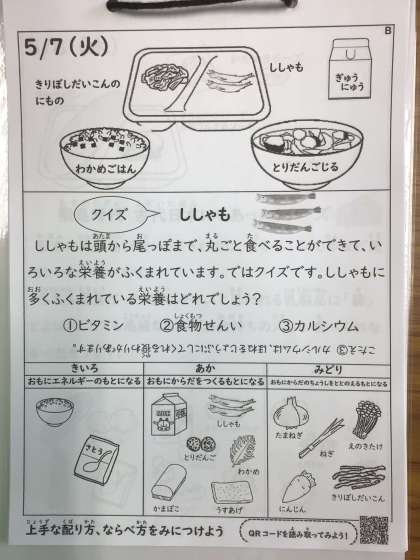 B
5/7(火)
ししゃも
きりぼしだいこんの
にもの
ぎゅう
にゅう
わかめごはん
とりだんごじる
クイズ
ししゃも
ししゃもは頭から尾っぽまで、丸ごと食べることができて、い
ろいろな栄養がふくまれています。ではクイズです。ししゃもに
多くふくまれている栄養はどれでしょう?
①ビタミン ②食物せんい ③カルシウム
こたえ③ カルシウムは、ほねをじょうぶにしてくれる役わりがあります。
きいろ
おもにエネルギーのもとになる
あか
おもにからだをつくるもとになる
みどり
おもにからだのちょうしをととのえるもとになる
さとう
とりだんご
わかめ
かまぼこ
うすあげ
たまねぎ
ねぎ
えのきたけ
にんじん
きりぼしだいこん
上手な配り方、ならべ方をみにつけよう
QRコードを読み取ってみよう!